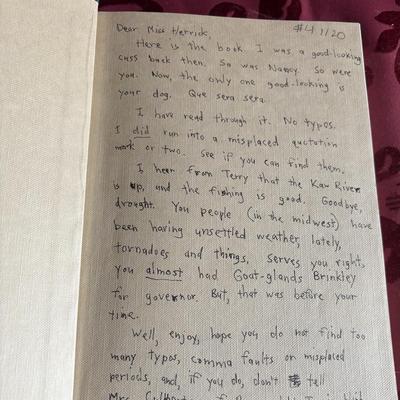 Dear Miss Herrick, #4 1/20
Here is the book. I was a good-looking
cuss back then. So was Nancy. So were
you. Now, the only one good-looking is
your dog. Que sera sera.
I have read through it. No typos.
I did run into a misplaced quotation
mark or two. See if you can find them.
I hear from Terry that the Kaw River
is up, and the fishing is good. Goodbye,
drought. You people (in the midwest) have
been having unsettled weather, lately,
tornadoes and things, serves you right,
you almost had Goat-glands Brinkley
for governor. But, that was before your
time.
Well, enjoy, hope you do not find too
many typos, comma faults or misplaced
periods, and, if you do, don't tell
Mrs.